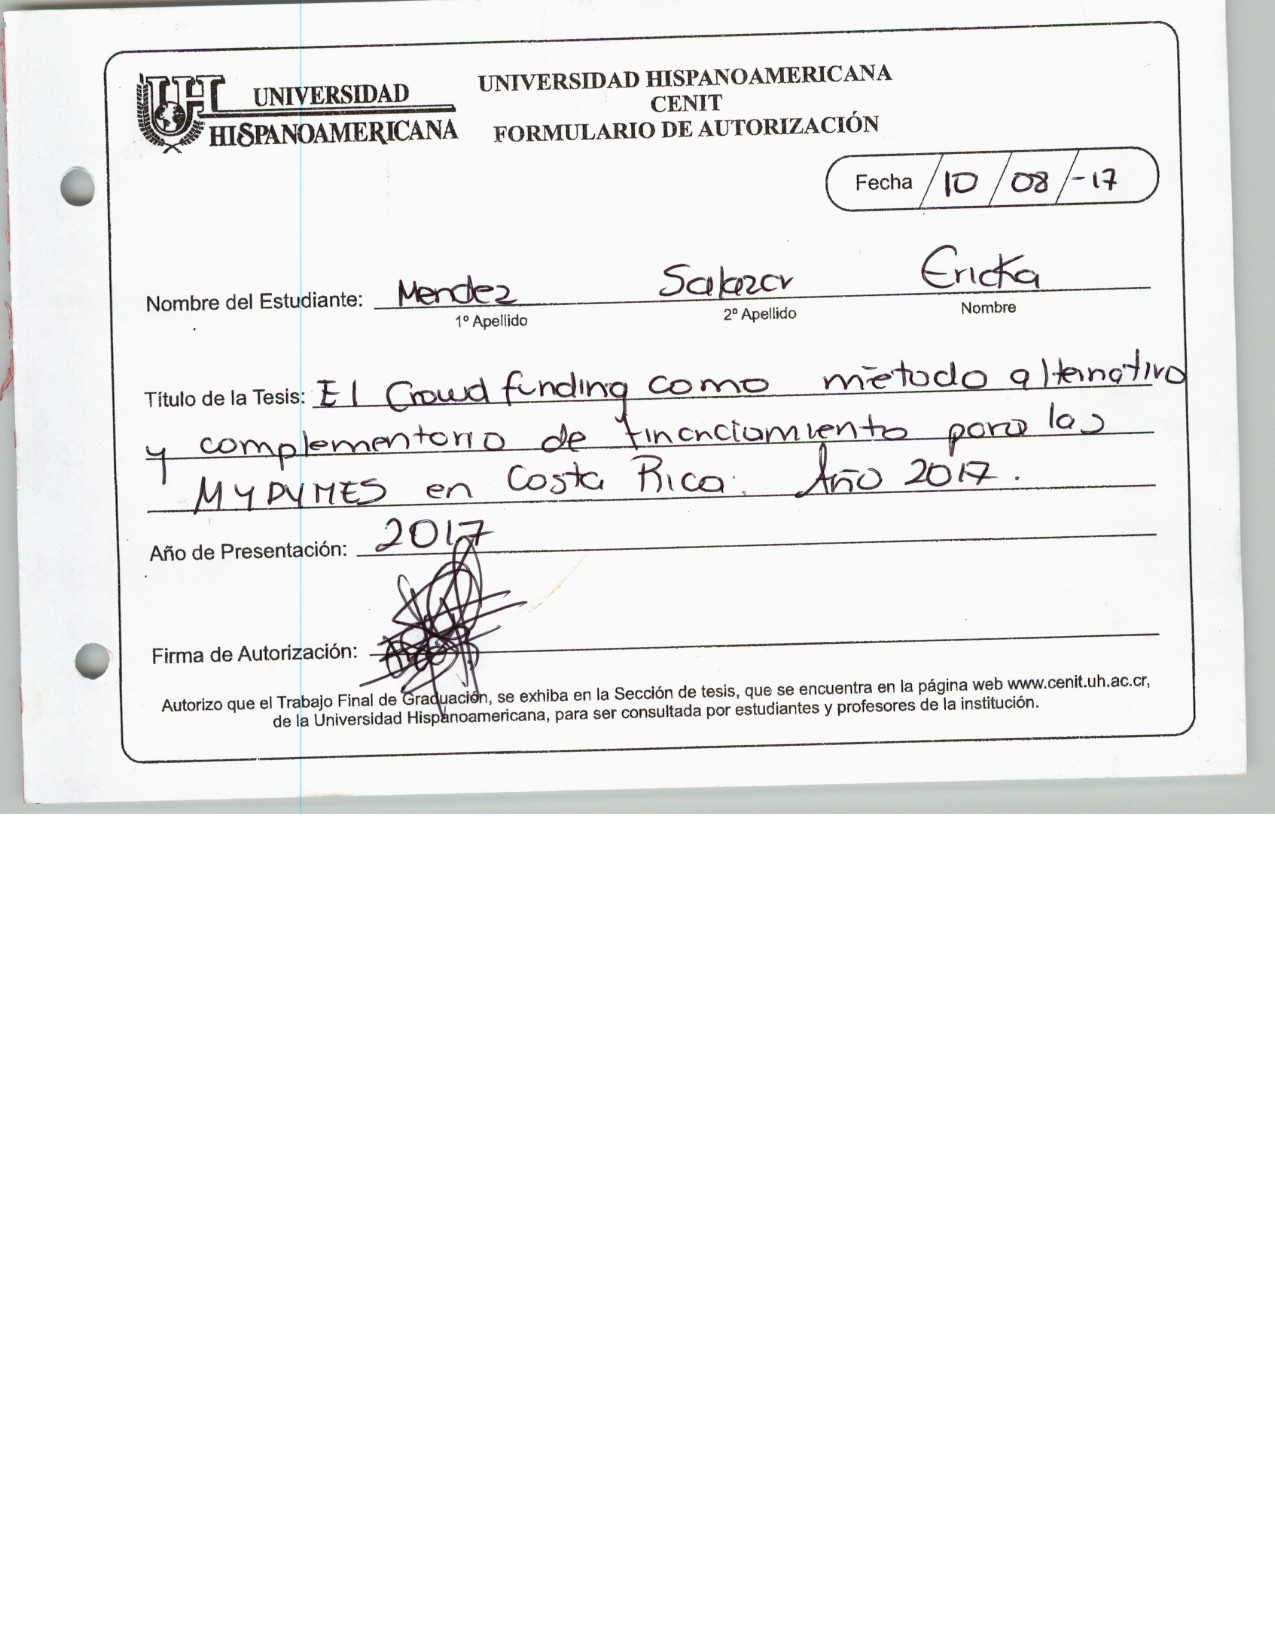 UNIVERSIDAD
HISPANOAMERICANA
UNIVERSIDAD HISPANOAMERICANA
CENIT
FORMULARIO DE AUTORIZACIÓN
Fecha /10/08/-17
Nombre del Estudiante: Mendez Salazar Ericka
1º Apellido 2º Apellido Nombre
Título de la Tesis: El Crowdfunding como metodo alternativo
y complementario de financiamiento para las
MYPYMES en Costa Rica. Año 2017.
Año de Presentación: 2017
Firma de Autorización:
Autorizo que el Trabajo Final de Graduación, se exhiba en la Sección de tesis, que se encuentra en la página web www.cenit.uh.ac.cr,
de la Universidad Hispanoamericana, para ser consultada por estudiantes y profesores de la institución.